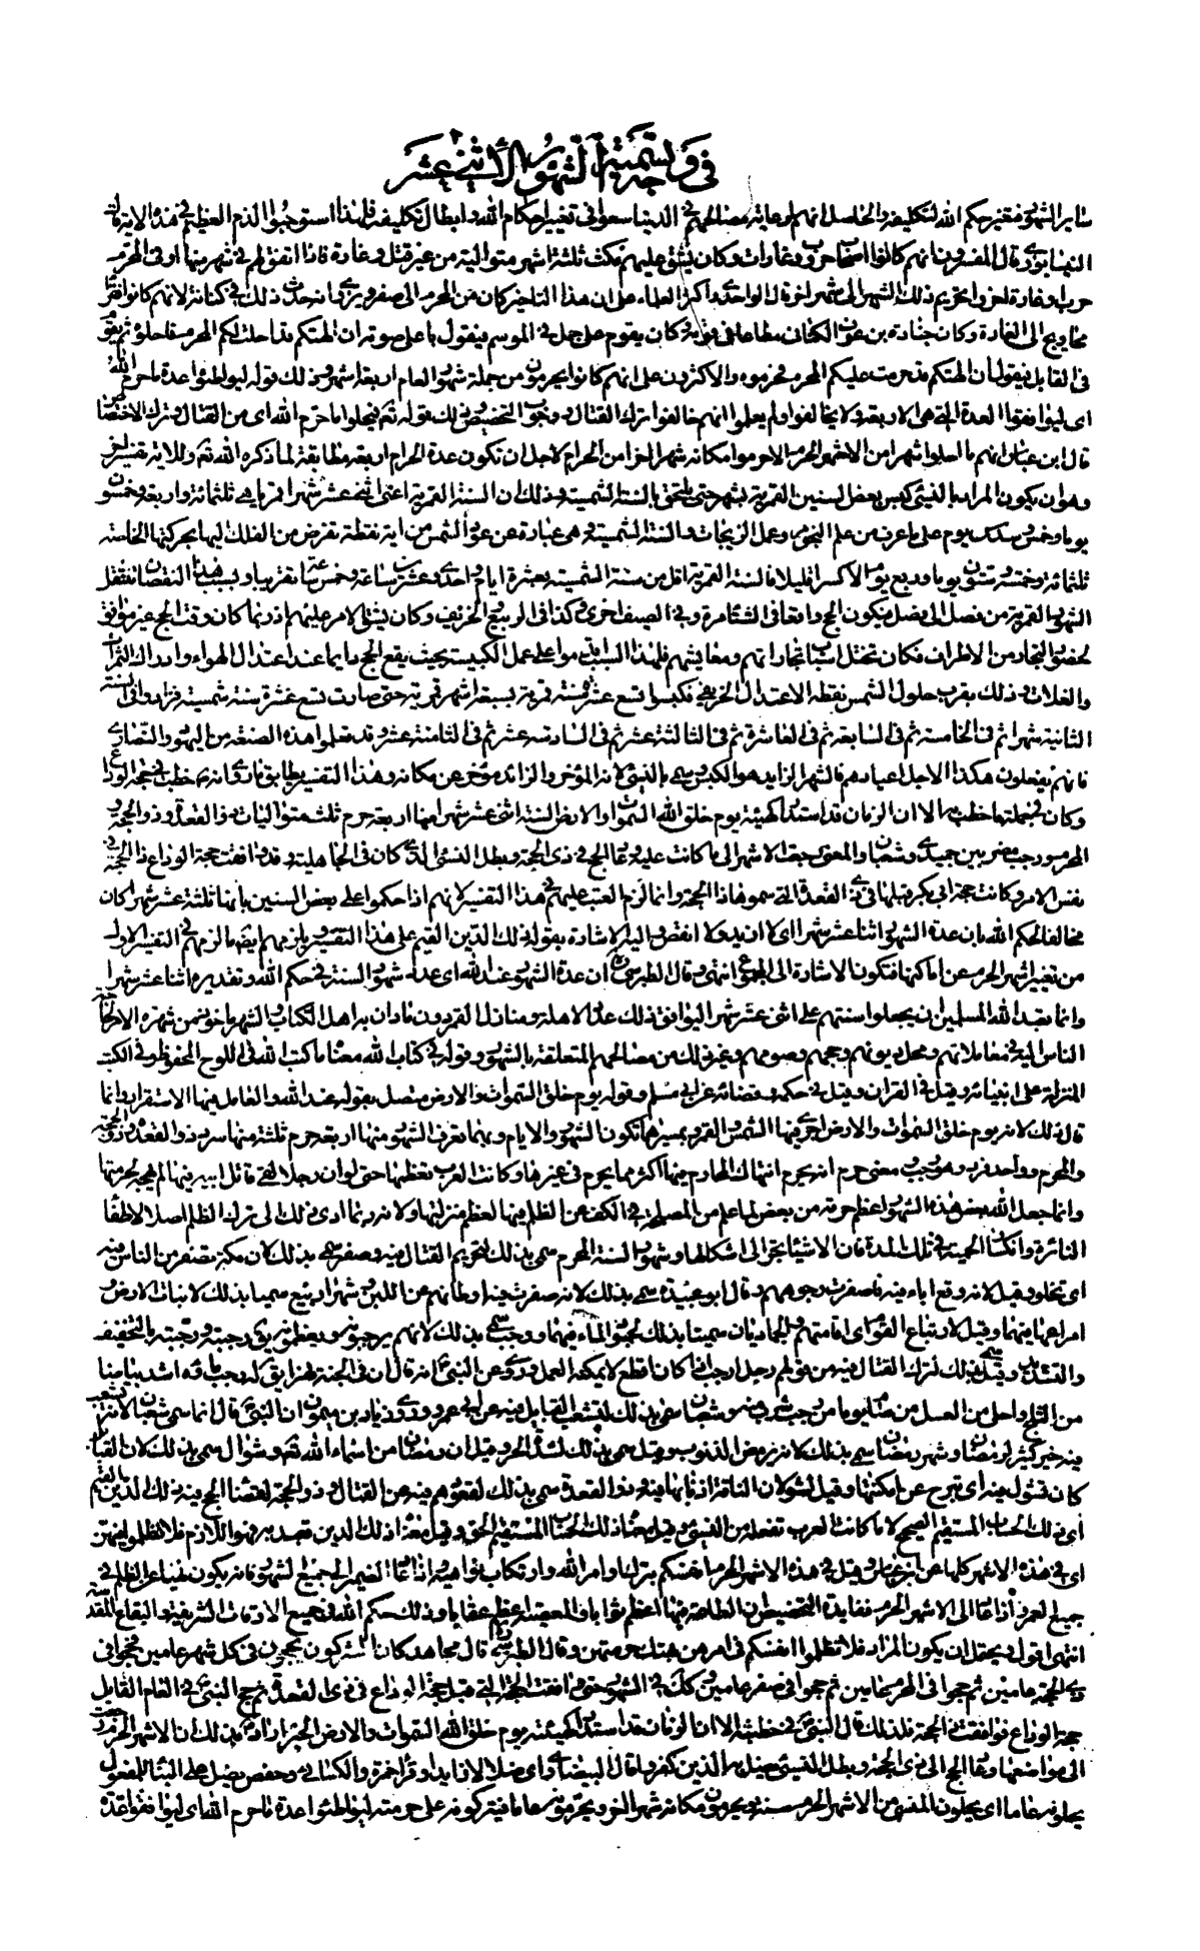 في وجه تسمية الشهور الأثني عشر
سائر الشهور فتغير حكم الله لتكليفه والحاصل انهم لرعاية مصالحهم في الدنيا سعوا في تغيير احكام الله وابطال تكليفه فلهذا استوجبوا الذم العظيم في هذه الاية قال
النيسابوري قال المفسرون انهم كانوا اصحاب حروب وغارات وكان يشق عليهم مكث ثلثة اشهر متوالية من غير قتل وغارة فاذا اتفق لهم في شهر منها او في المحرم
حرب او غارة اخروا تحريم ذلك الشهر الى شهر اخر قال الواحدي واكثر العلماء على ان هذا التاخير كان من المحرم الى صفر ويروى انه حدث ذلك في كنانة لانهم كانوا فقراء
محاويج الى الغارة وكان جنادة بن عوف الكناني مطاعا في قومه وكان يقوم على جمل في الموسم فيقول باعلى صوته ان الهتكم قد احلت لكم المحرم فاحلوه ثم يقوم
في القابل فيقول ان الهتكم قد حرمت عليكم المحرم فحرموه والاكثرون على انهم كانوا يحرمون من جملة شهور العام اربعة اشهر وذلك قوله ليواطئوا عدة ما حرم الله
اي ليوافقوا العدة التي هي الاربعة ولا يخالفوا ولم يعلموا انهم خالفوا ترك القتال ووجوب التخصيص وذلك قوله تع فيحلوا ما حرم الله اي من القتال وترك الاختصاص
قال ابن عباس انهم ما احلوا شهرا من الاشهر الحرم الا حرموا مكانه شهرا اخر من الحرام لاجل ان تكون عدة الحرام اربعة مطابقة لما ذكره الله تع وللاية تفسير اخر
وهو ان يكون المراد بالنسيئ كبس بعض السنين القمرية بشهر حتى يلتحق بالسنة الشمسية وذلك ان السنة القمرية اعني اثنى عشر شهرا قمريا هي ثلثمائة واربعة وخمسون
يوما وخمس وسدس يوم على ما عرف من علم النجوم وعمل الزيجات والسنة الشمسية وهي عبارة عن عود الشمس من اية نقطة تفرض من الفلك اليها بحركتها الخاصة
ثلثمائة وخمسة وستون يوما وربع يوم الا كسرا قليلا فالسنة القمرية اقل من سنة الشمسية بعشرة ايام واحدى وعشرين ساعة وخمس ساعة تقريبا وبسبب هذا النقصان تنتقل
الشهور القمرية من فصل الى فصل فيكون الحج واقعا في الشتاء مرة وفي الصيف اخرى وكذا في الربيع والخريف وكان يشق الامر عليهم اذ ربما كان وقت الحج غير موافق
لحضور التجار من الاطراف فكان تختل اسباب تجاراتهم ومعايشهم فلهذا السبب اقدموا على عمل الكبيسة بحيث يقع الحج دايما عند اعتدال الهواء وادراك الثمرات
والغلات وذلك بقرب حلول الشمس نقطة الاعتدال الخريفي فكبسوا تسع عشرة سنة قمرية بسبعة اشهر قمرية حتى صارت تسع عشرة سنة شمسية فزادوا في السنة
الثانية شهرا ثم في الخامسة ثم في السابعة ثم في العاشرة ثم في الثالثة عشر ثم في السادسة عشر ثم في الثامنة عشر وقد تعلموا هذه الصنعة من اليهود والنصارى
فانهم يفعلون هكذا لاجل اعيادهم فالشهر الزايد هو الكبس وسمي بالنسيئ لانه المؤخر والزائد مؤخر عن مكانه وهذا التفسير يطابق ما روي انه ص خطب في حجة الوداع
وكان في جملة ما خطب به الا ان الزمان قد استدار كهيئته يوم خلق الله السموات والارض السنة اثنى عشر شهرا منها اربعة حرم ثلث متواليات ذو القعدة وذو الحجة و
المحرم ورجب مضر بين جمادى وشعبان والمعنى رجعت الاشهر الى ما كانت عليه وعاد الحج في ذي الحجة وبطل النسئ الذي كان في الجاهلية وقد وافقت حجة الوداع ذا الحجة في
نفس الامر وكانت حجة ابي بكر قبلها في ذي القعدة التي سموها ذا الحجة وانما لزم العتب عليهم في هذا التفسير لانهم اذا حكموا على بعض السنين بانها ثلثة عشر شهرا كان
مخالفا لحكم الله بان عدة الشهور اثنا عشر شهرا اي لا ازيد ولا انقص واليه الاشارة بقوله ذلك الدين القيم على هذا التفسير ويلزمهم ايضا ما لزمهم في التفسير الاول
من تغيير اشهر الحرم عن اماكنها فتكون الاشارة الى المجموع انتهى وقال الطبرسي ره ان عدة الشهور عند الله اي عدد شهور السنة في حكم الله وتقديره اثنا عشر شهرا
وانما تعبد الله المسلمين ان يجعلوا سنتهم على اثنى عشر شهرا ليوافق ذلك عدد الاهلة ومنازل القمر دون ما دان به اهل الكتاب والشهر ماخوذ من شهرة الامر لحاجة
الناس اليه في معاملاتهم ومحل ديونهم وحجهم وصومهم وغير ذلك من مصالحهم المتعلقة بالشهور وقوله في كتاب الله معناه ما كتب الله في اللوح المحفوظ وفي الكتب
المنزلة على انبيائه وقيل في القران وقيل في حكمه وقضائه عن ابي مسلم وقوله يوم خلق السموات والارض متصل بقوله عند الله والعامل فيها الاستقرار وانما
قال ذلك لانه يوم خلق السموات والارض اجرى فيها الشمس والقمر وبمسيرهما تكون الشهور والايام وبهما تعرف الشهور منها اربعة حرم ثلثة منها سرد ذو القعدة وذو الحجة
والمحرم وواحد فرد وهو رجب ومعنى حرم انه يحرم انتهاك المحارم فيها اكثر مما يحرم في غيرها وكانت العرب تعظمها حتى لو ان رجلا لقي قاتل ابيه فيها لم يهجه لحرمتها
وانما جعل الله بعض هذه الشهور اعظم حرمة من بعض لما علم من المصلحة في الكف عن الظلم فيها لعظم منزلتها ولانه ربما ادى ذلك الى ترك الظلم اصلا لاطفاء
النائرة وانكسار الحمية في تلك المدة فان الاشياء تجر الى اشكالها وشهور السنة المحرم سمي بذلك لتحريم القتال فيه وصفر سمي بذلك لان مكة تصفر من الناس فيه
اي تخلو وقيل لانه وقع وباء فيه فاصفرت وجوههم وقال ابو عبيدة سمي بذلك لانه صفرت فيه اوطابهم عن اللبن وشهرا ربيع سميا بذلك لانبات الارض
وامراعها فيهما وقيل لارتباع القوم اي اقامتهم والجماديان سميتا بذلك لجمود الماء فيهما ورجب سمي بذلك لانهم يرجبونه ويعظمونه يق رجبته ورجبته بالتخفيف
والتشديد وقيل سمي بذلك لترك القتال فيه من قولهم رجل ارجب اذا كان اقطع لا يمكنه العمل وروي عن النبي ص انه قال ان في الجنة نهرا يق له رجب ماؤه اشد بياضا
من الثلج واحلى من العسل من صام يوما من رجب شرب منه وشعبان سمي بذلك لتشعب القبايل فيه عن ابي عمرو وروى زياد بن ميمون ان النبي ص قال انما سمي شعبان لانه يتشعب
فيه خير كثير لرمضان وشهر رمضان سمي بذلك لانه يرمض الذنوب وقيل سمي بذلك لشدة الحر وقيل ان رمضان من اسماء الله تع وشوال سمي بذلك لان القبائل
كان تشول فيه اي تبرح عن امكنتها وقيل لشولان الناقة اذنابها فيه وذو القعدة سمي بذلك لقعودهم فيه عن القتال وذو الحجة لقضاء الحج فيه ذلك الدين القيم
اي ذلك الحساب المستقيم الصحيح لا ما كانت العرب تفعله من النسيئ وقيل معناه ذلك الحساب المستقيم الحق وقيل معناه ذلك الدين تعبد به فهو اللازم فلا تظلموا فيهن
اي في هذه الاشهر كلها عن ابن عباس وقيل في هذه الاشهر الحرم انفسكم بترك اوامر الله وارتكاب نواهيه اذا عاد الضمير الى جميع الشهور فانه يكون نهيا عن الظلم في
جميع العمر واذا عاد الى الاشهر الحرم ففايدة التخصيص ان الطاعة فيها اعظم ثوابا والمعصية اعظم عقابا وذلك حكم الله في جميع الاوقات الشريفة والبقاع المقدسة
انتهى اقول ويحتمل ان يكون المراد فلا تظلموا انفسكم في امرهن بهتك حرمتهن وقال الطبرسي ره قال مجاهد كان المشركون يحجون في كل شهر عامين فحجوا في
ذي الحجة عامين ثم حجوا في المحرم عامين ثم حجوا في صفر عامين وكك في الشهور حتى وافقت الحجة التي قبل حجة الوداع في ذي القعدة ثم حج النبي ص في العام القابل
حجة الوداع فوافقت ذي الحجة فلذلك قال النبي ص في خطبته الا ان الزمان قد استدار كهيئته يوم خلق الله السموات والارض الخبر اراد ص بذلك ان الاشهر الحرم رجعت
الى مواضعها وعاد الحج الى ذي الحجة وبطل النسيئ يضل به الذين كفروا قال البيضاوي اي ضلالا زايدا وقرأ حمزة والكسائي وحفص يضل على البناء للمفعول
يحلونه عاما اي يحلون المنسي من الاشهر الحرم سنة ويحرمون مكانه شهرا اخر ويحرمونه عاما فيتركونه على حرمته ليواطئوا عدة ما حرم الله اي ليوافقوا عدة